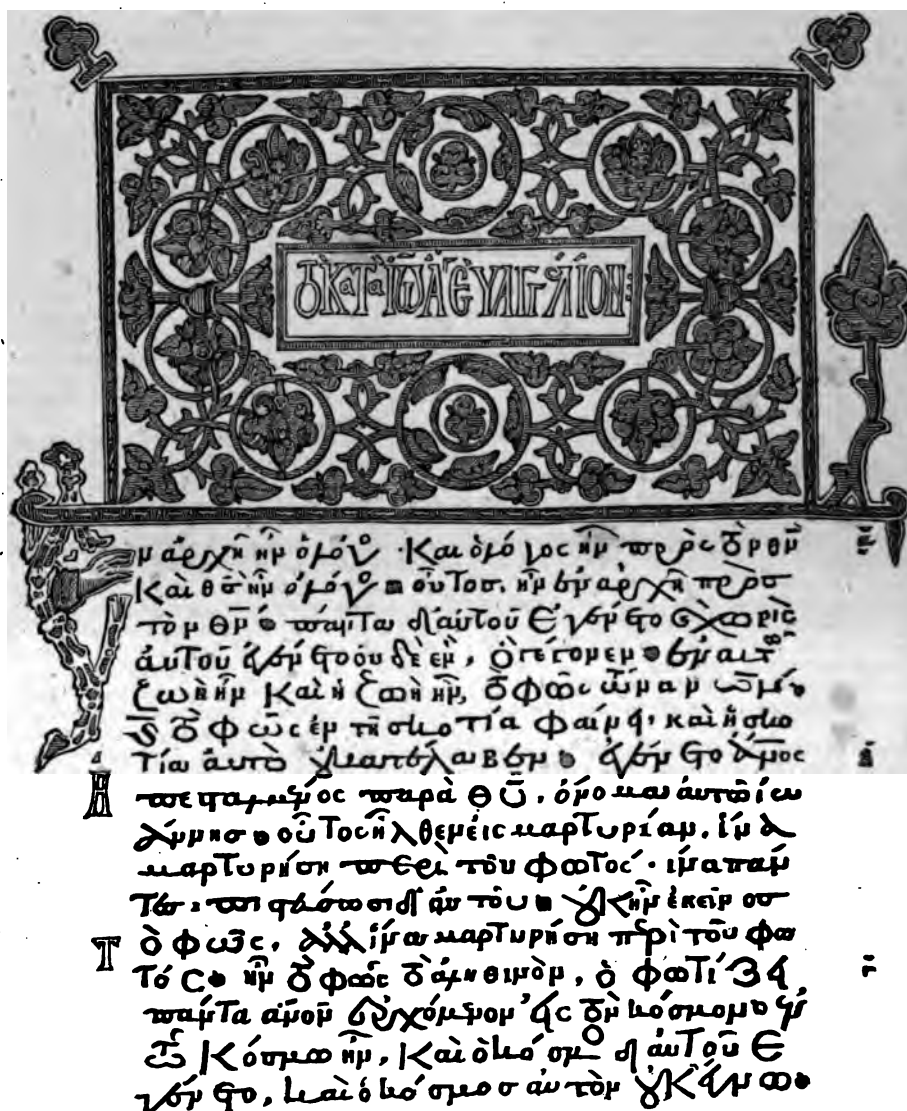 τὸ κατὰ ἰω̅ά ἐυαγγέλιον
Ἐν ἀρχῆ ἦν ὁ λόγος · Καὶ ὁ λόγος ἦν πρὸς τὸν θν̅
Καὶ θσ̅ ἦν ὁ λόγος οὗτος ἦν ἐν ἀρχῆ πρὸσ
τὸν θν̅ πάντα δι αὐτοῦ ἐγένετο χωρὶς
ἀυτοῦ ἐγένετο οὐδὲ ἐν, ὃ γέγονεν ἐν αὐτῶ
ζωὴ ἦν καὶ ἡ ζωὴ ἦν, τὸ φῶς τῶν ἀνω̅ν
καὶ τὸ φῶς ἐν τῆ σκοτία φαίνει, καὶ ἡ σκο
τία ἀυτὸ οὐ κατέλαβεν ἐγένετο ἄνος
ἀπεσταλμένος παρὰ θυ̅, ὄνομα ἀυτῶ ἰω
άννησ οὗτος ἦλθεν εἰς μαρτυρίαν, ἵνα
μαρτυρήση περὶ τοῦ φωτός · ἵνα πάν
τες πιστεύσωσι δι αὐτοῦ οὐκ ἦν ἐκεῖνοσ
τὸ φῶς, ἀλλ ἵνα μαρτυρήση περὶ τοῦ φω
τός ἦν τὸ φῶς τὸ ἀληθινὸν, ὃ φωτίζει
πάντα ἄνον ἐρχόμενον εἰς τὸν κόσμον ἐν
τῶ κόσμω ἦν, καὶ ὁ κόσμος δι ἀυτοῦ ἐ
γένετο, καὶ ὁ κόσμοσ αὐτὸν οὐκ ἔγνω